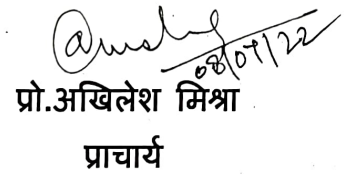 08/07/22
प्रो.अखिलेश मिश्रा
प्राचार्य